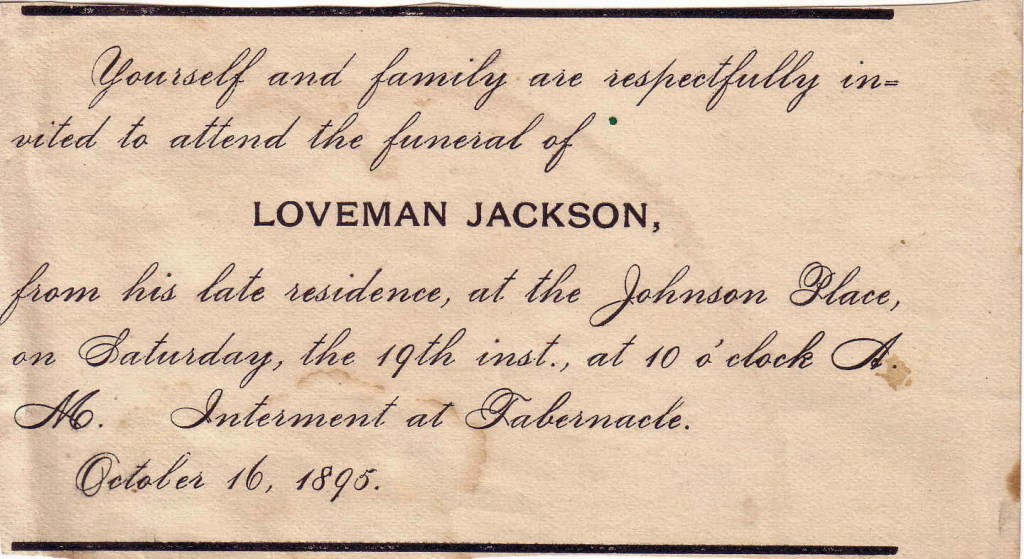 Yourself and family are respectfully in=
vited to attend the funeral of
LOVEMAN JACKSON,
from his late residence, at the Johnson Place,
on Saturday, the 19th inst., at 10 o'clock A.
M. Interment at Tabernacle.
October 16, 1895.